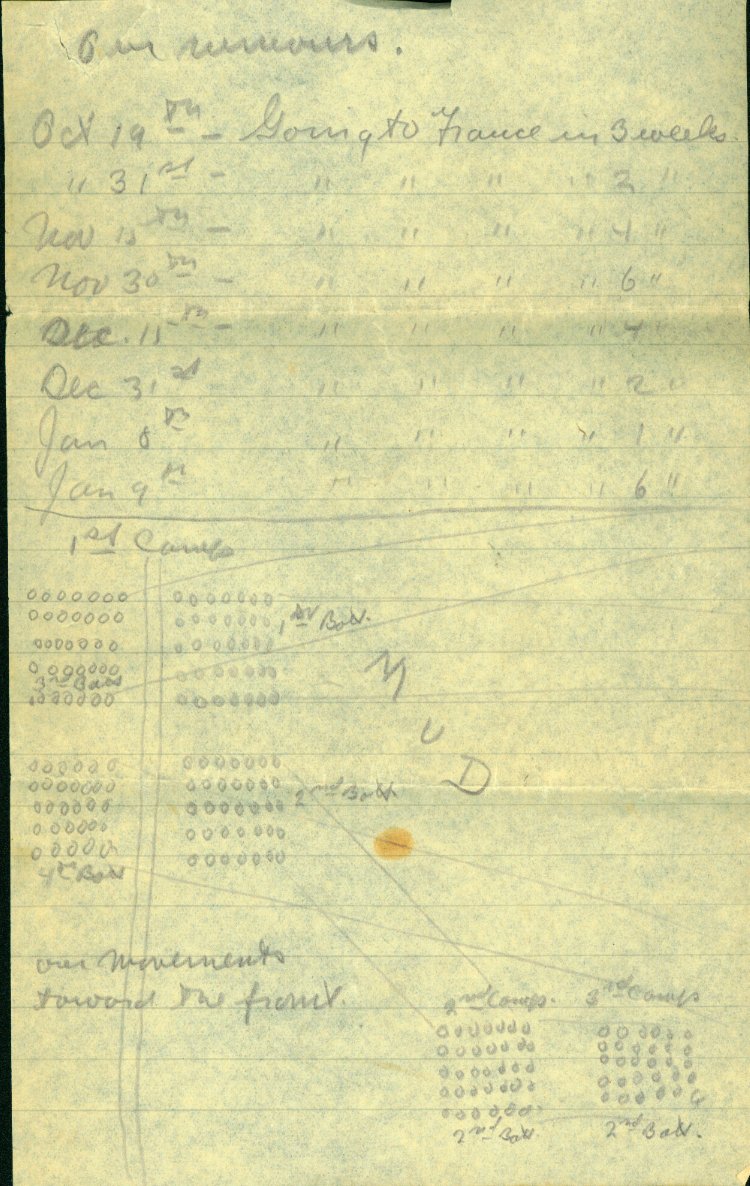 Our rumours.
Oct 19th – Going to France in 3 weeks.
" 31st – " " " " 2 "
Nov 15th – " " " " 4 "
Nov 30th – " " " " 6 "
Dec. 15th – " " " " 4 "
Dec 31st – " " " " 2 "
Jan 8th " " " " 1 "
Jan 9th " " " " 6 "
1st Camp
1st Batt.
3rd Batt
MUD
2nd Batt.
4th Batt
our movements
toward the front.
2nd Camp. 3rd Camp
2nd Batt. 2nd Batt.